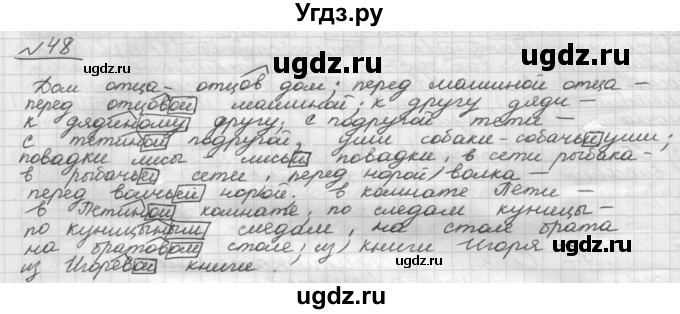 Угдз.ру
№48
Дом отца – отцов дом; перед машиной отца –
перед отцовой машиной; к другу дяди –
к дядиному другу; с подругой тети –
с тетиной подругой, уши собаки – собачьи уши;
повадки лисы – лисьи повадки, в сети рыбака –
в рыбачьей сети, перед норой волка –
перед волчьей норкой. в комнате Пети –
в Петиной комнате, по следам куницы –
по куницыным следам, на столе брата
на братовом столе; из книги Игоря
из Игоревой книги.
gdz.ru
ugdz.ru
ugdz.ru
ugdz.ru
ugdz.ru
ugdz.ru
ugdz.ru
ugdz.ru
ugdz.ru